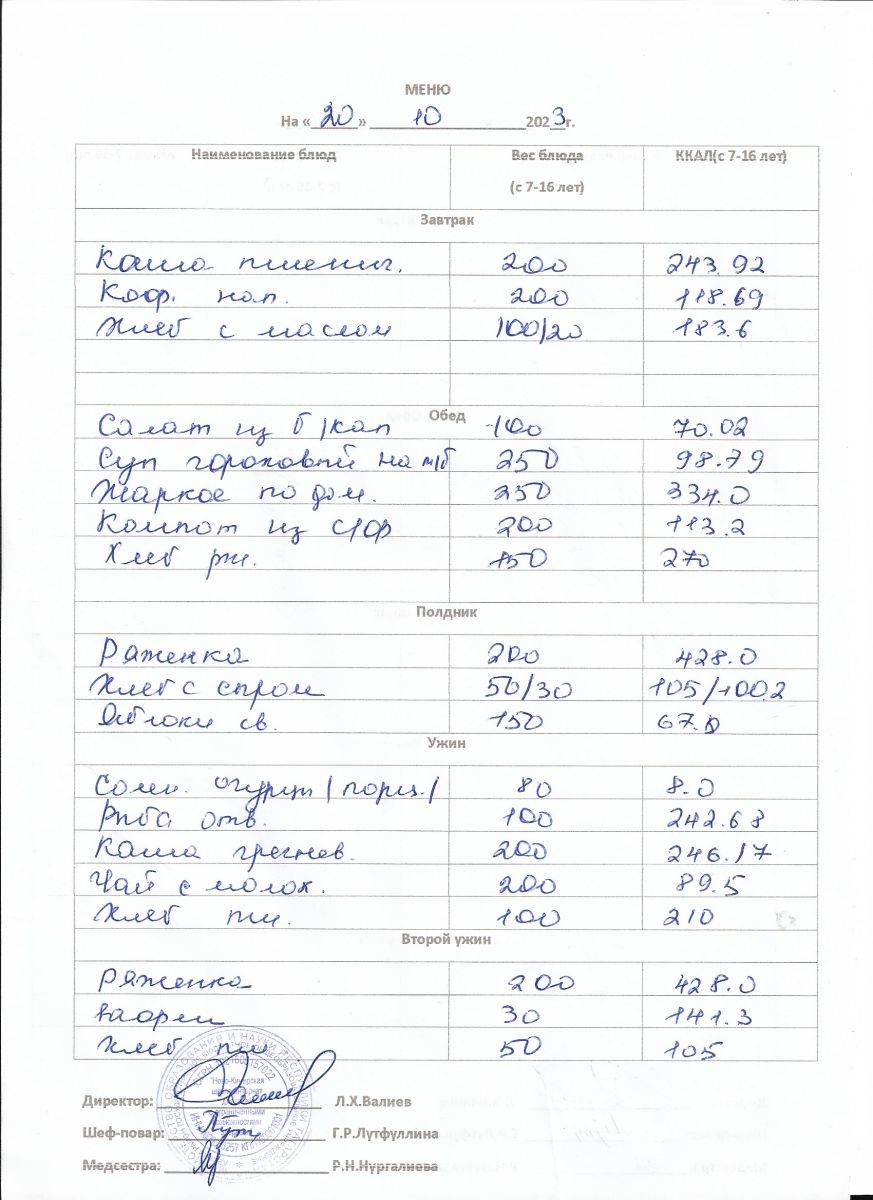 МЕНЮ
На «20» 10 2023г.
Наименование блюд Вес блюда (с 7-16 лет) ККАЛ(с 7-16 лет)
Завтрак
Каша пшенич. 200 243.92
Коф. нап. 200 118.69
Хлеб с маслом 100/20 183.6
Обед
Салат из б/кап 100 70.02
Суп гороховый на м/б 250 98.79
Жаркое по дом. 250 334.0
Компот из с/ф 200 113.2
Хлеб рж. 150 270
Полдник
Ряженка 200 428.0
Хлеб с сыром 50/30 105/100.2
Яблоки св. 150 67.0
Ужин
Солен. огурцы /порц./ 80 8.0
Рыба отв. 100 242.68
Каша гречнев. 200 246.17
Чай с молок. 200 89.5
Хлеб пш. 100 210
Второй ужин
Ряженка 200 428.0
30 141.3
Хлеб пш. 50 105
Директор: Л.Х.Валиев
Шеф-повар: Г.Р.Лутфуллина
Медсестра: Р.Н.Нургалиева